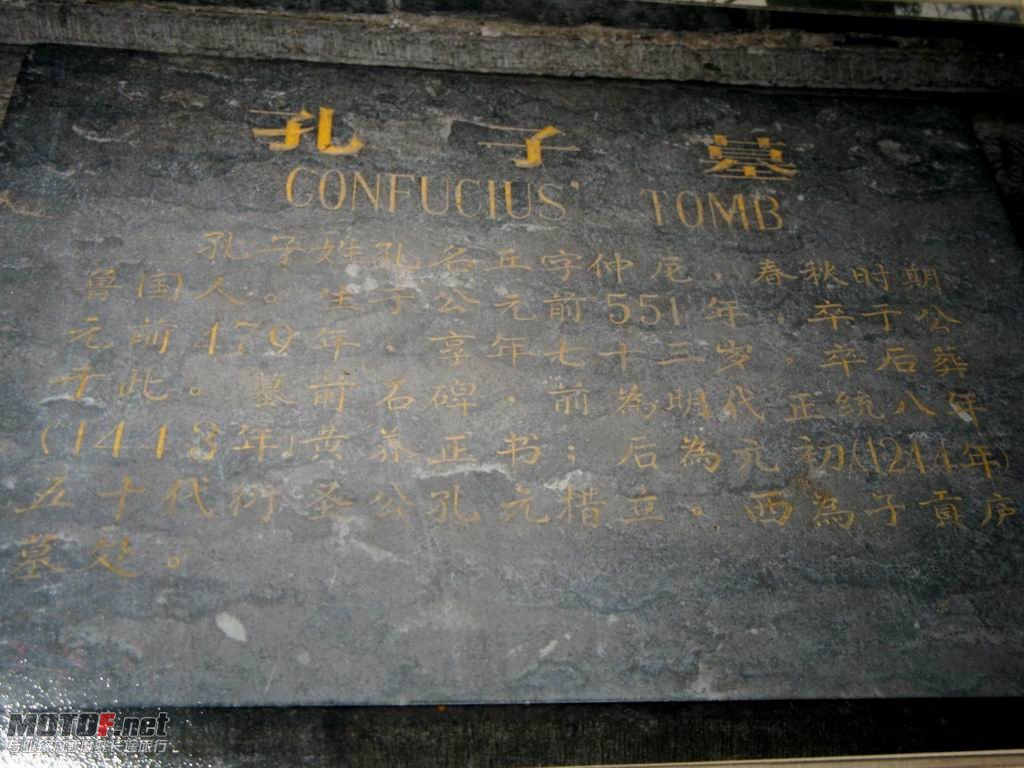 孔子墓
CONFUCIUS' TOMB
孔子姓孔名丘字仲尼，春秋时期
鲁国人。生于公元前551年，卒于公
元前479年，享年七十三岁，卒后葬
于此。墓前名碑，前為明代正统八年
(1443年)黄养正书；后為元初(1244年)
五十代衍圣公孔元措立。西為子貢庐
墓处。
MOTOF.net
长途旅行